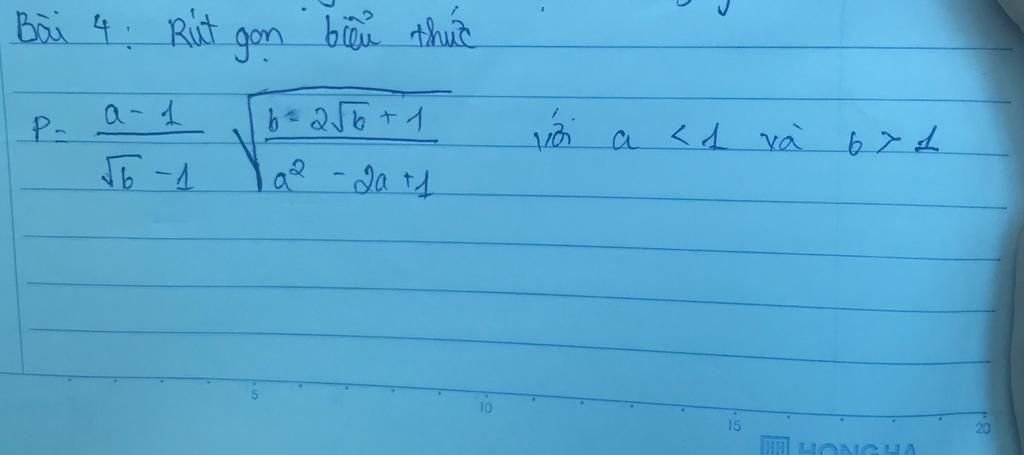 Bài 4: Rút gọn biểu thức
P = \frac{a - 1}{\sqrt{b} - 1} \sqrt{\frac{b - 2\sqrt{b} + 1}{a^2 - 2a + 1}} với a < 1 và b > 1
5 10 15 20
HONG HA